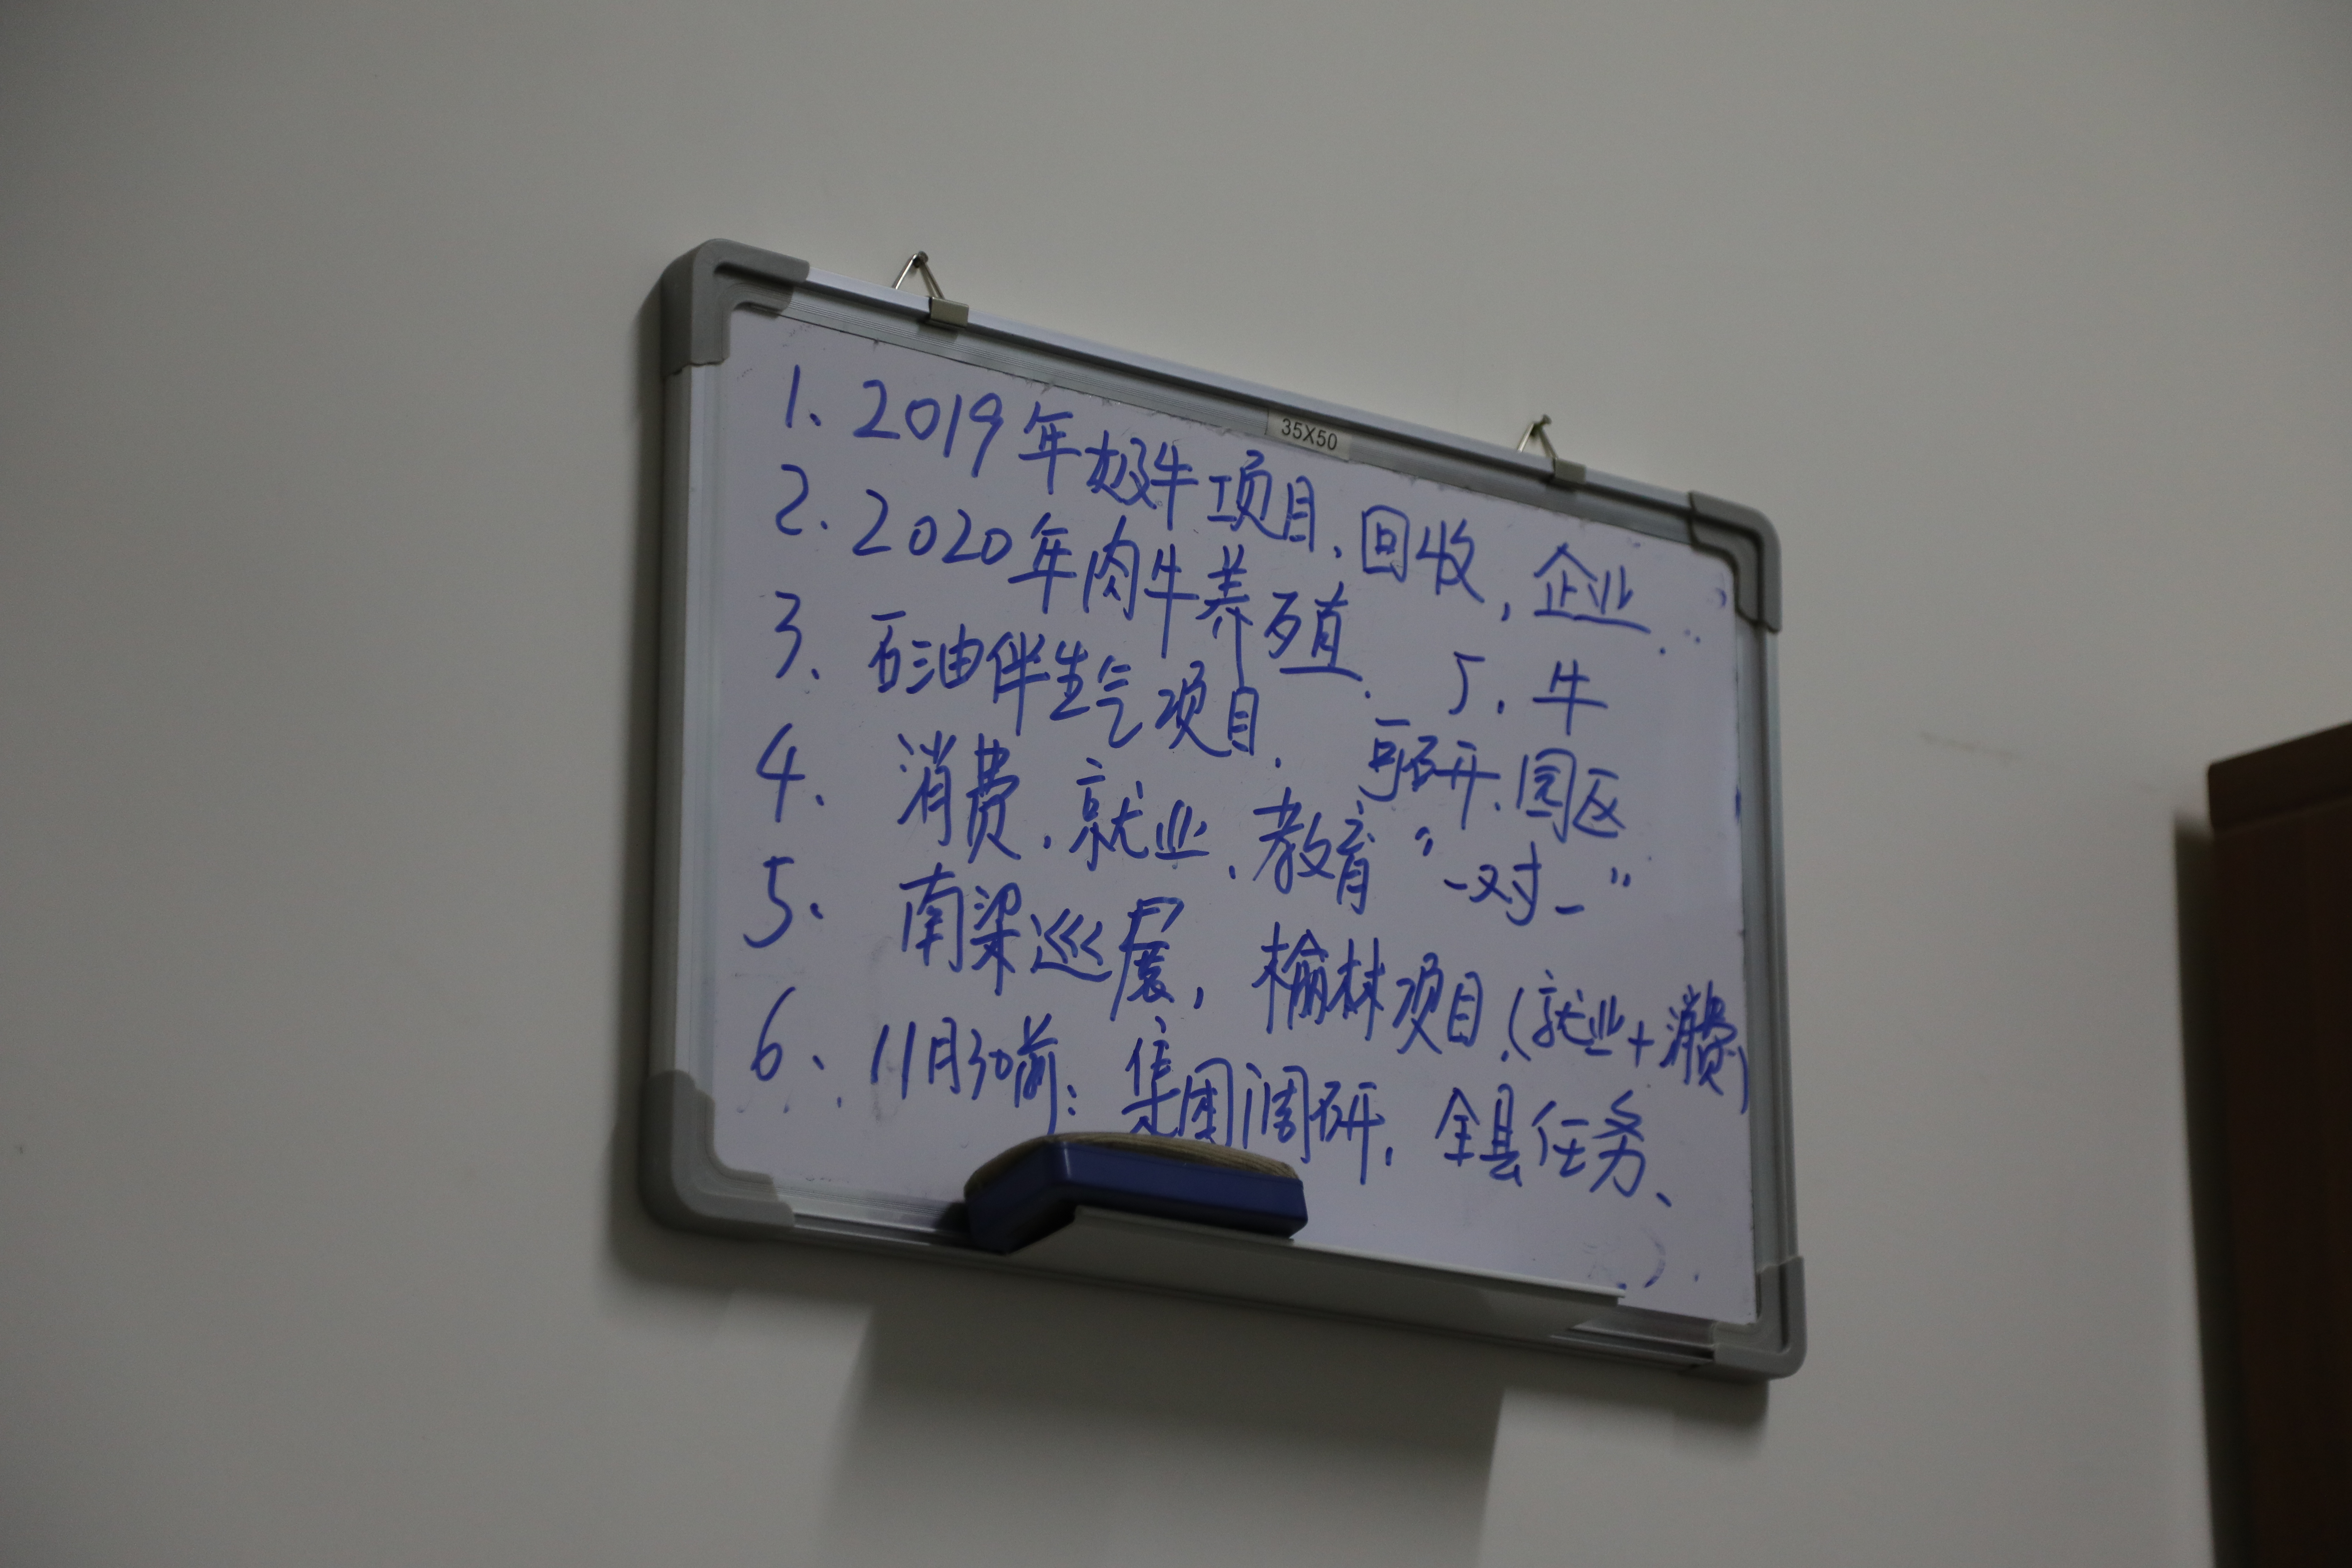 35X50
1、2019年奶牛项目、回收，企业.
2.2020年肉牛养殖. 厂.牛
3、石油伴生气项目. 可研、园区
4、消费.就业.教育“一对一”
5、南梁巡展，榆林项目.(就业+消费)
6、11月30前：集团调研.全县任务、